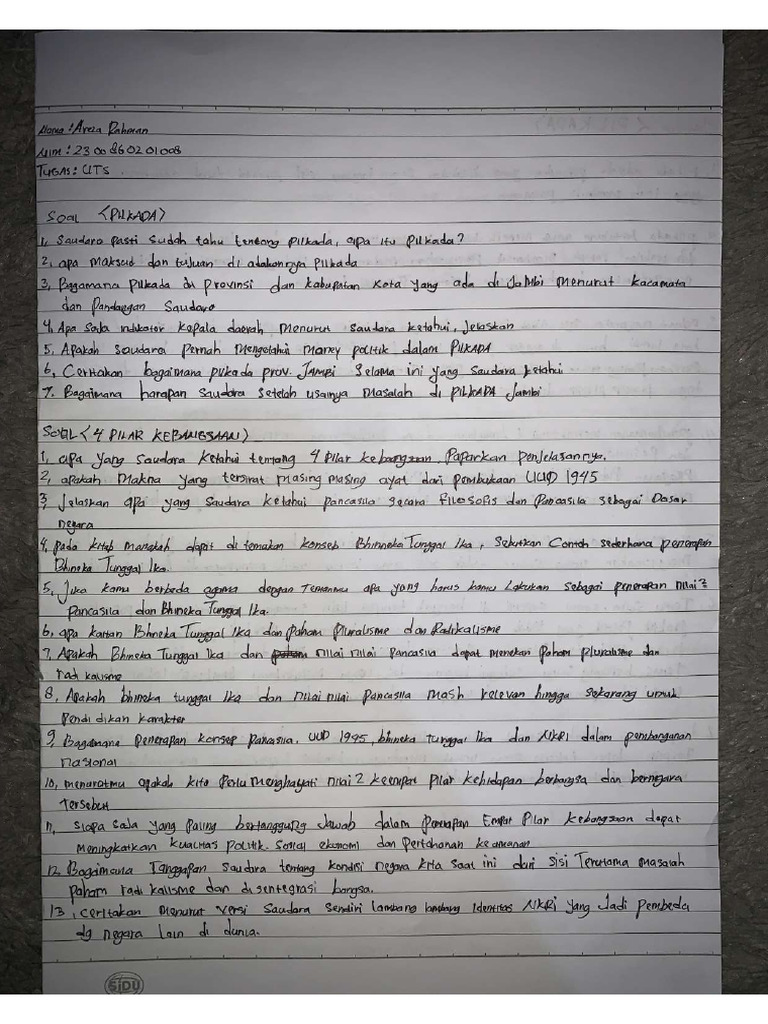 Nama : Areza Rahman
NIM : 2300860201008
TUGAS : UTS
SOAL <PILKADA>
1, Saudara pasti sudah tahu tentang pilkada, apa itu pilkada?
2, apa maksud dan tujuan di adakannya pilkada
3, Bagamana pilkada di provinsi dan kabupatan kota yang ada di Jambi menurut kacamata
dan pandangan saudara
4, Apa saja indikator kepala daerah menurut saudara ketahui, jelaskan
5, Apakah saudara pernah mengetahui money politik dalam PILKADA
6, Ceritakan bagaimana pilkada prov. Jambi selama ini yang saudara ketahui
7, Bagaimana harapan saudara setelah usainya masalah di PILKADA Jambi
SOAL <4 PILAR KEBANGSAAN>
1, apa yang saudara ketahui tentang 4 pilar kebangsaan, Paparkan penjelasannya.
2, apakah makna yang tersirat masing masing ayat dari pembukaan UUD 1945
3, Jelaskan apa yang saudara ketahui pancasila secara filosofis dan Pancasila sebagai Dasar
negara
4, pada kitab manakah dapat di temukan konsep Bhinneka Tunggal Ika, sebutkan contoh sederhana penerapan
Bhineka Tunggal Ika.
5, Jika kamu berbeda agama dengan temanmu apa yang harus kamu lakukan sebagai penerapan nilai2
pancasila dan Bhineka Tunggal Ika.
6, apa kaitan Bhneka Tunggal Ika dan paham pluralisme dan Radikalisme
7, Apakah Bhineka Tunggal Ika dan nilai nilai pancasila dapat menekan paham pluralisme dan
radi kalisme
8, Apakah bhineka tunggal Ika dan nilai nilai pancasila mash relevan hingga sekarang untuk
pendi dikan karakter
9, Bagamana penerapan konsep pancasila, UUD 1945, bhineka tunggal Ika dan NKRI dalam pembangunan
nasional
10, menurutmu apakah kita perlu menghayati nilai2 keempat pilar kehidupan berbangsa dan bernegara
tersebut
11, siapa saja yang paling bertanggung jawab dalam penerapan Empat Pilar kebangsaan dapat
meningkatkan kualitas politik. Sosial ekonomi dan pertahanan keamanan
12, Bagaimana Tanggapan saudara tentang kondisi negara kita saat ini dari sisi Terutama masalah
paham radi kalisme dan disentegrasi bangsa.
13, ceritakan menurut versi saudara sendiri lambang lambang identitas NKRI yang jadi pembeda
dg negara lain di dunia.
SIDU